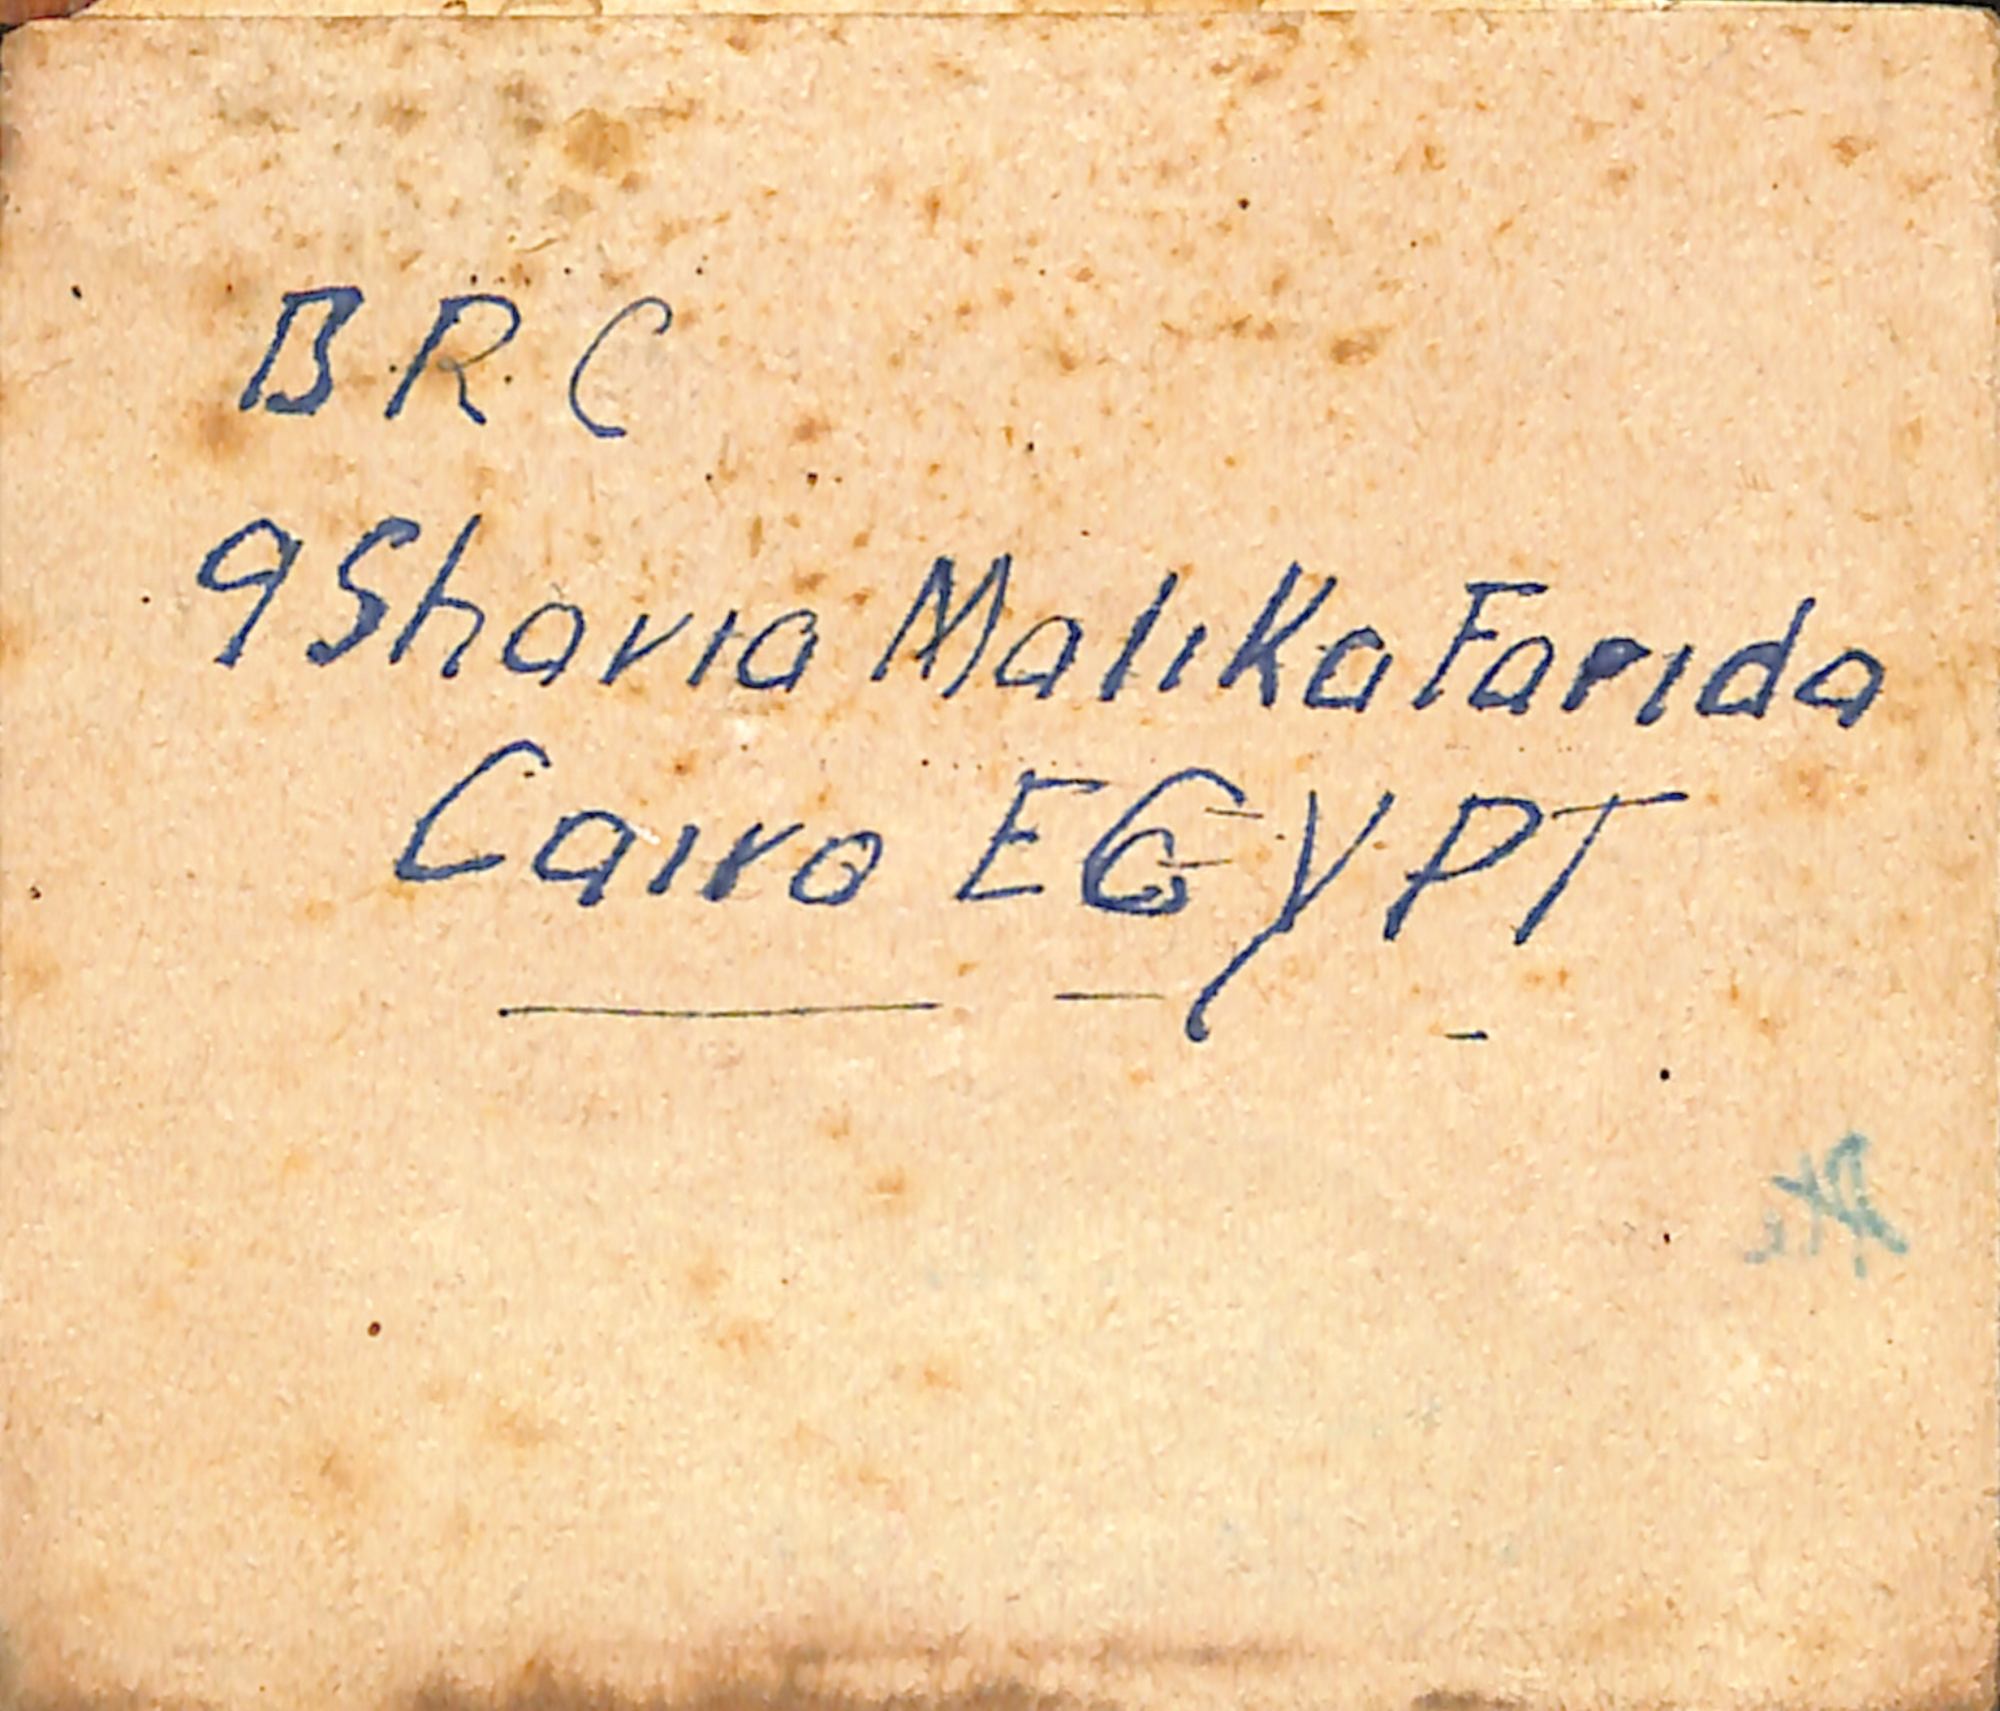 B.R.C
9 Sharia Malika Farida
Cairo EGYPT